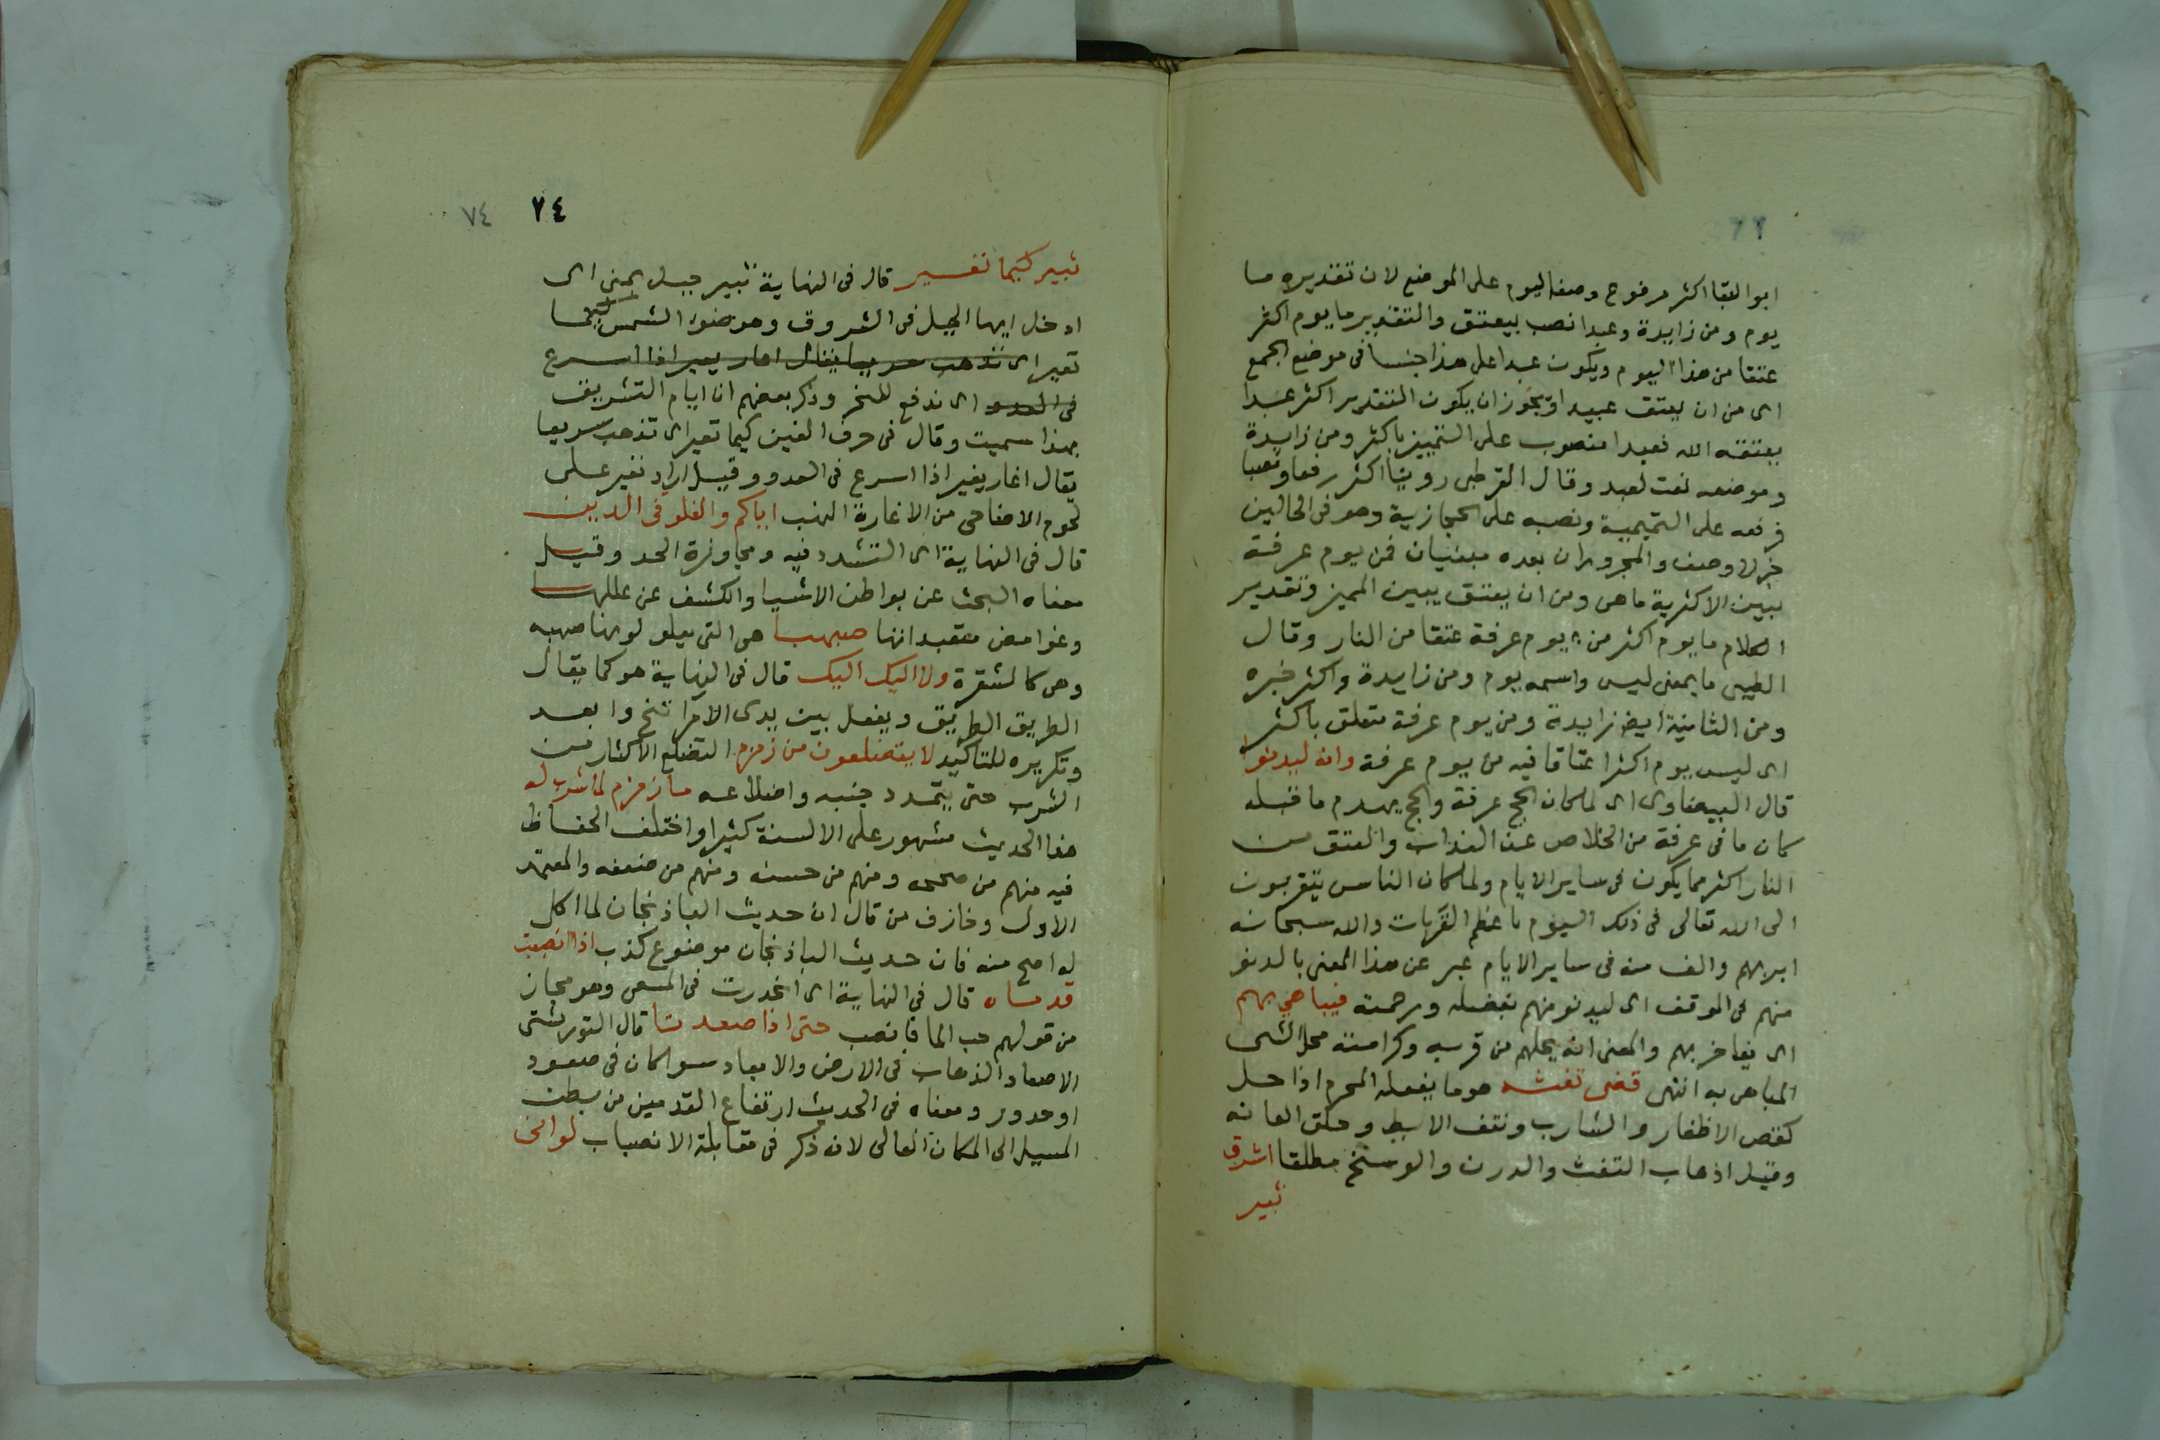 ابو البقا اكثر مرفوع وصفا ليوم على الموضع لان تقديره ما
يوم ومن زايدة وعبدا نصب بيعتق والتقدير ما يوم اكثر
عتقا من هذا اليوم ويكون عبدا على هذا جنسا فى موضع الجمع
اى من ان يعتق عبيدا ويجوز ان يكون التقدير اكثر عبدا
يعتقه الله فعبدا منصوب على التمييز باكثر ومن زايدة
وموضعه نعت لعبد وقال القرطبى روينا اكثر رفعا ونصبا
فرفعه على التميمية ونصبه على الحجازية وهو فى الحالين
خبر لا وصف والمجروران بعده مبنيان فمن يوم عرفة
يبين الاكثرية ما هى ومن ان يعتق يبين المميز وتقدير
الكلام ما يوم اكثر من يوم عرفة عتقا من النار وقال
الطيبى ما بمعنى ليس واسمه يوم ومن زايدة واكثر خبره
ومن الثانية ايض زايدة ومن يوم عرفة متعلق باكثر
اى ليس يوم اكثر اعتاقا فيه من يوم عرفة وانه ليدنوا
قال البيضاوى اى لما كان الحج عرفة والحج يهدم ما قبله
كان ما فى عرفة من الخلاص عن العذاب والعتق من
النار اكثر مما يكون فى ساير الايام ولما كان الناس يتقربون
الى الله تعالى فى ذلك اليوم باعظم القربات والله سبحانه
ابر بهم والطف منه فى ساير الايام عبر عن هذا المعنى بالدنو
منهم فى الموقف اى ليدنو منهم بفضله ورحمته فيباهى بهم
اى يفاخر بهم والمعنى انه يحلهم من قربه وكرامته محل الشى
المباهى به انتهى قضى تفثه هو ما يفعله المحرم اذا حل
كقص الاظفار والشارب ونتف الابط وحلق العانه
وقيل اذهاب التفث والدرن والوسخ مطلقا اشرق
ثبير
٧٤ ٧٤
ثبير كيما نغير قال فى النهاية ثبير جبل بمنى اى
ادخل ايها الجبل فى الشروق وهو ضوء الشمس كيما
تغير اى نذهب سريعا يقال اغار يغير اذا اسرع
فى العدو اى ندفع للنحر وذكر بعضهم ان ايام التشريق
بهذا سميت وقال فى حرف الغين كيما تغير اى نذهب سريعا
يقال اغار يغير اذا اسرع فى العدو وقيل اراد نغير على
لحوم الاضاحى من الاغارة النهب اياكم والغلو فى الدين
قال فى النهاية اى التشدد فيه ومجاوزة الحد وقيل
معناه البحث عن بواطن الاشيا والكشف عن عللها
وغوامض متعبداتها صهبا هى التى يعلو لونها صهبه
وهى كالشقرة ولا اليك اليك قال فى النهاية هو كما يقال
الطريق الطريق ويفعل بين يدى الامرا تنح وابعد
وتكريره للتاكيد لا يتضلعون من زمزم التضلع الاكثار من
الشرب حتى يتمدد جنبه واضلاعه ما زمزم لما شرب له
هذا الحديث مشهور على الالسنة كثيرا واختلف الحفاظ
فيه منهم من صححه ومنهم من حسنه ومنهم من ضعفه والمعتمد
الاول وخازف من قال ان حديث الباذنجان لما اكل
له اصح منه فان حديث الباذنجان موضوع كذب اذا انصبت
قدماه قال فى النهاية اى انحدرت فى المسعى وهو مجاز
من قولهم صب الما فانصب حتى اذا صعدتا قال التوربشتى
الاصعاد الذهاب فى الارض والابعاد سوا كان فى صعود
او حدور ومعناه فى الحديث ارتفاع القدمين من بطن
المسيل الى المكان العالى لانه ذكر فى مقابلة الانصباب لو انى